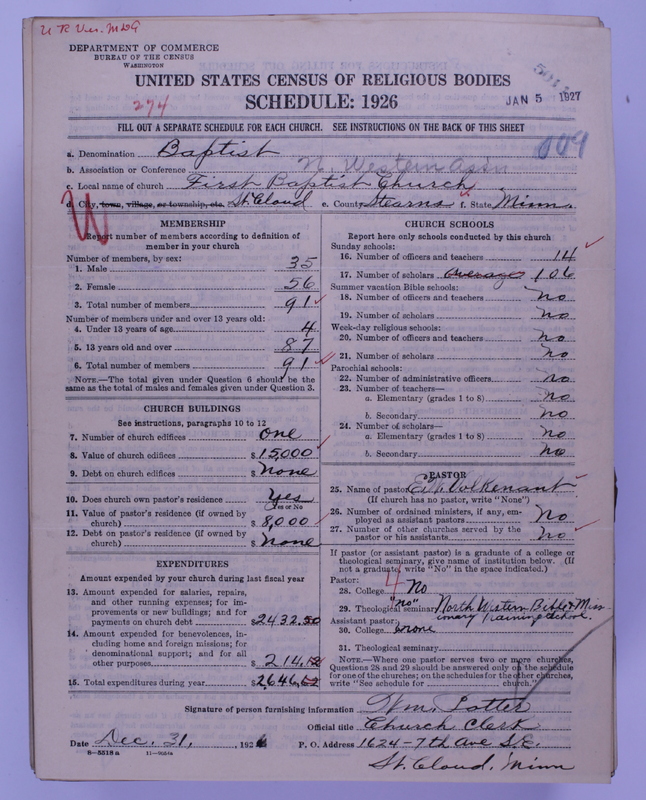 U R Ver. MDG
DEPARTMENT OF COMMERCE
BUREAU OF THE CENSUS
WASHINGTON
UNITED STATES CENSUS OF RELIGIOUS BODIES
SCHEDULE: 1926
274
JAN 5 1927
FILL OUT A SEPARATE SCHEDULE FOR EACH CHURCH. SEE INSTRUCTIONS ON THE BACK OF THIS SHEET
009
a. Denomination Baptist
b. Association or Conference N. Western Assn
c. Local name of church First Baptist Church
d. City, town, village, or township, etc. St. Cloud e. County Stearns f. State Minn.
W
MEMBERSHIP
Report number of members according to definition of
member in your church
Number of members, by sex:
1. Male 35
2. Female 56
3. Total number of members 91
Number of members under and over 13 years old:
4. Under 13 years of age 4
5. 13 years old and over 87
6. Total number of members 91
NOTE.—The total given under Question 6 should be the
same as the total of males and females given under Question 3.
CHURCH BUILDINGS
See instructions, paragraphs 10 to 12
7. Number of church edifices One
8. Value of church edifices $15,000
9. Debt on church edifices $None
10. Does church own pastor's residence Yes
Yes or No
11. Value of pastor's residence (if owned by
church) $8,000
12. Debt on pastor's residence (if owned by
church) $None
EXPENDITURES
Amount expended by your church during last fiscal year
13. Amount expended for salaries, repairs,
and other running expenses; for im-
provements or new buildings; and for
payments on church debt $2432.50
14. Amount expended for benevolences, in-
cluding home and foreign missions; for
denominational support; and for all
other purposes $214.12
15. Total expenditures during year $2,646.62
CHURCH SCHOOLS
Report here only schools conducted by this church
Sunday schools:
16. Number of officers and teachers 14
17. Number of scholars average 106
Summer vacation Bible schools:
18. Number of officers and teachers No
19. Number of scholars No
Week-day religious schools:
20. Number of officers and teachers No
21. Number of scholars No
Parochial schools:
22. Number of administrative officers No
23. Number of teachers—
a. Elementary (grades 1 to 8) No
b. Secondary No
24. Number of scholars—
a. Elementary (grades 1 to 8) No
b. Secondary No
PASTOR
25. Name of pastor E. V. Volkenant
(If church has no pastor, write "None")
26. Number of ordained ministers, if any, em-
ployed as assistant pastors No
27. Number of other churches served by the
pastor or his assistants No
If pastor (or assistant pastor) is a graduate of a college or
theological seminary, give name of institution below. (If
not a graduate, write "No" in the space indicated.)
Pastor:
28. College No
4
"no"
29. Theological seminary North Western Bible & Miss-
ionary Training School.
Assistant pastor:
30. College none
31. Theological seminary
NOTE.—Where one pastor serves two or more churches,
Questions 28 and 29 should be answered only on the schedule
for one of the churches; on the schedules for the other churches,
write "See schedule for church."
Signature of person furnishing information Wm. Lotter
Official title Church Clerk
Date Dec. 31, 1926 P. O. Address 1624-7th Ave So.
8—5518a
St. Cloud, Minn